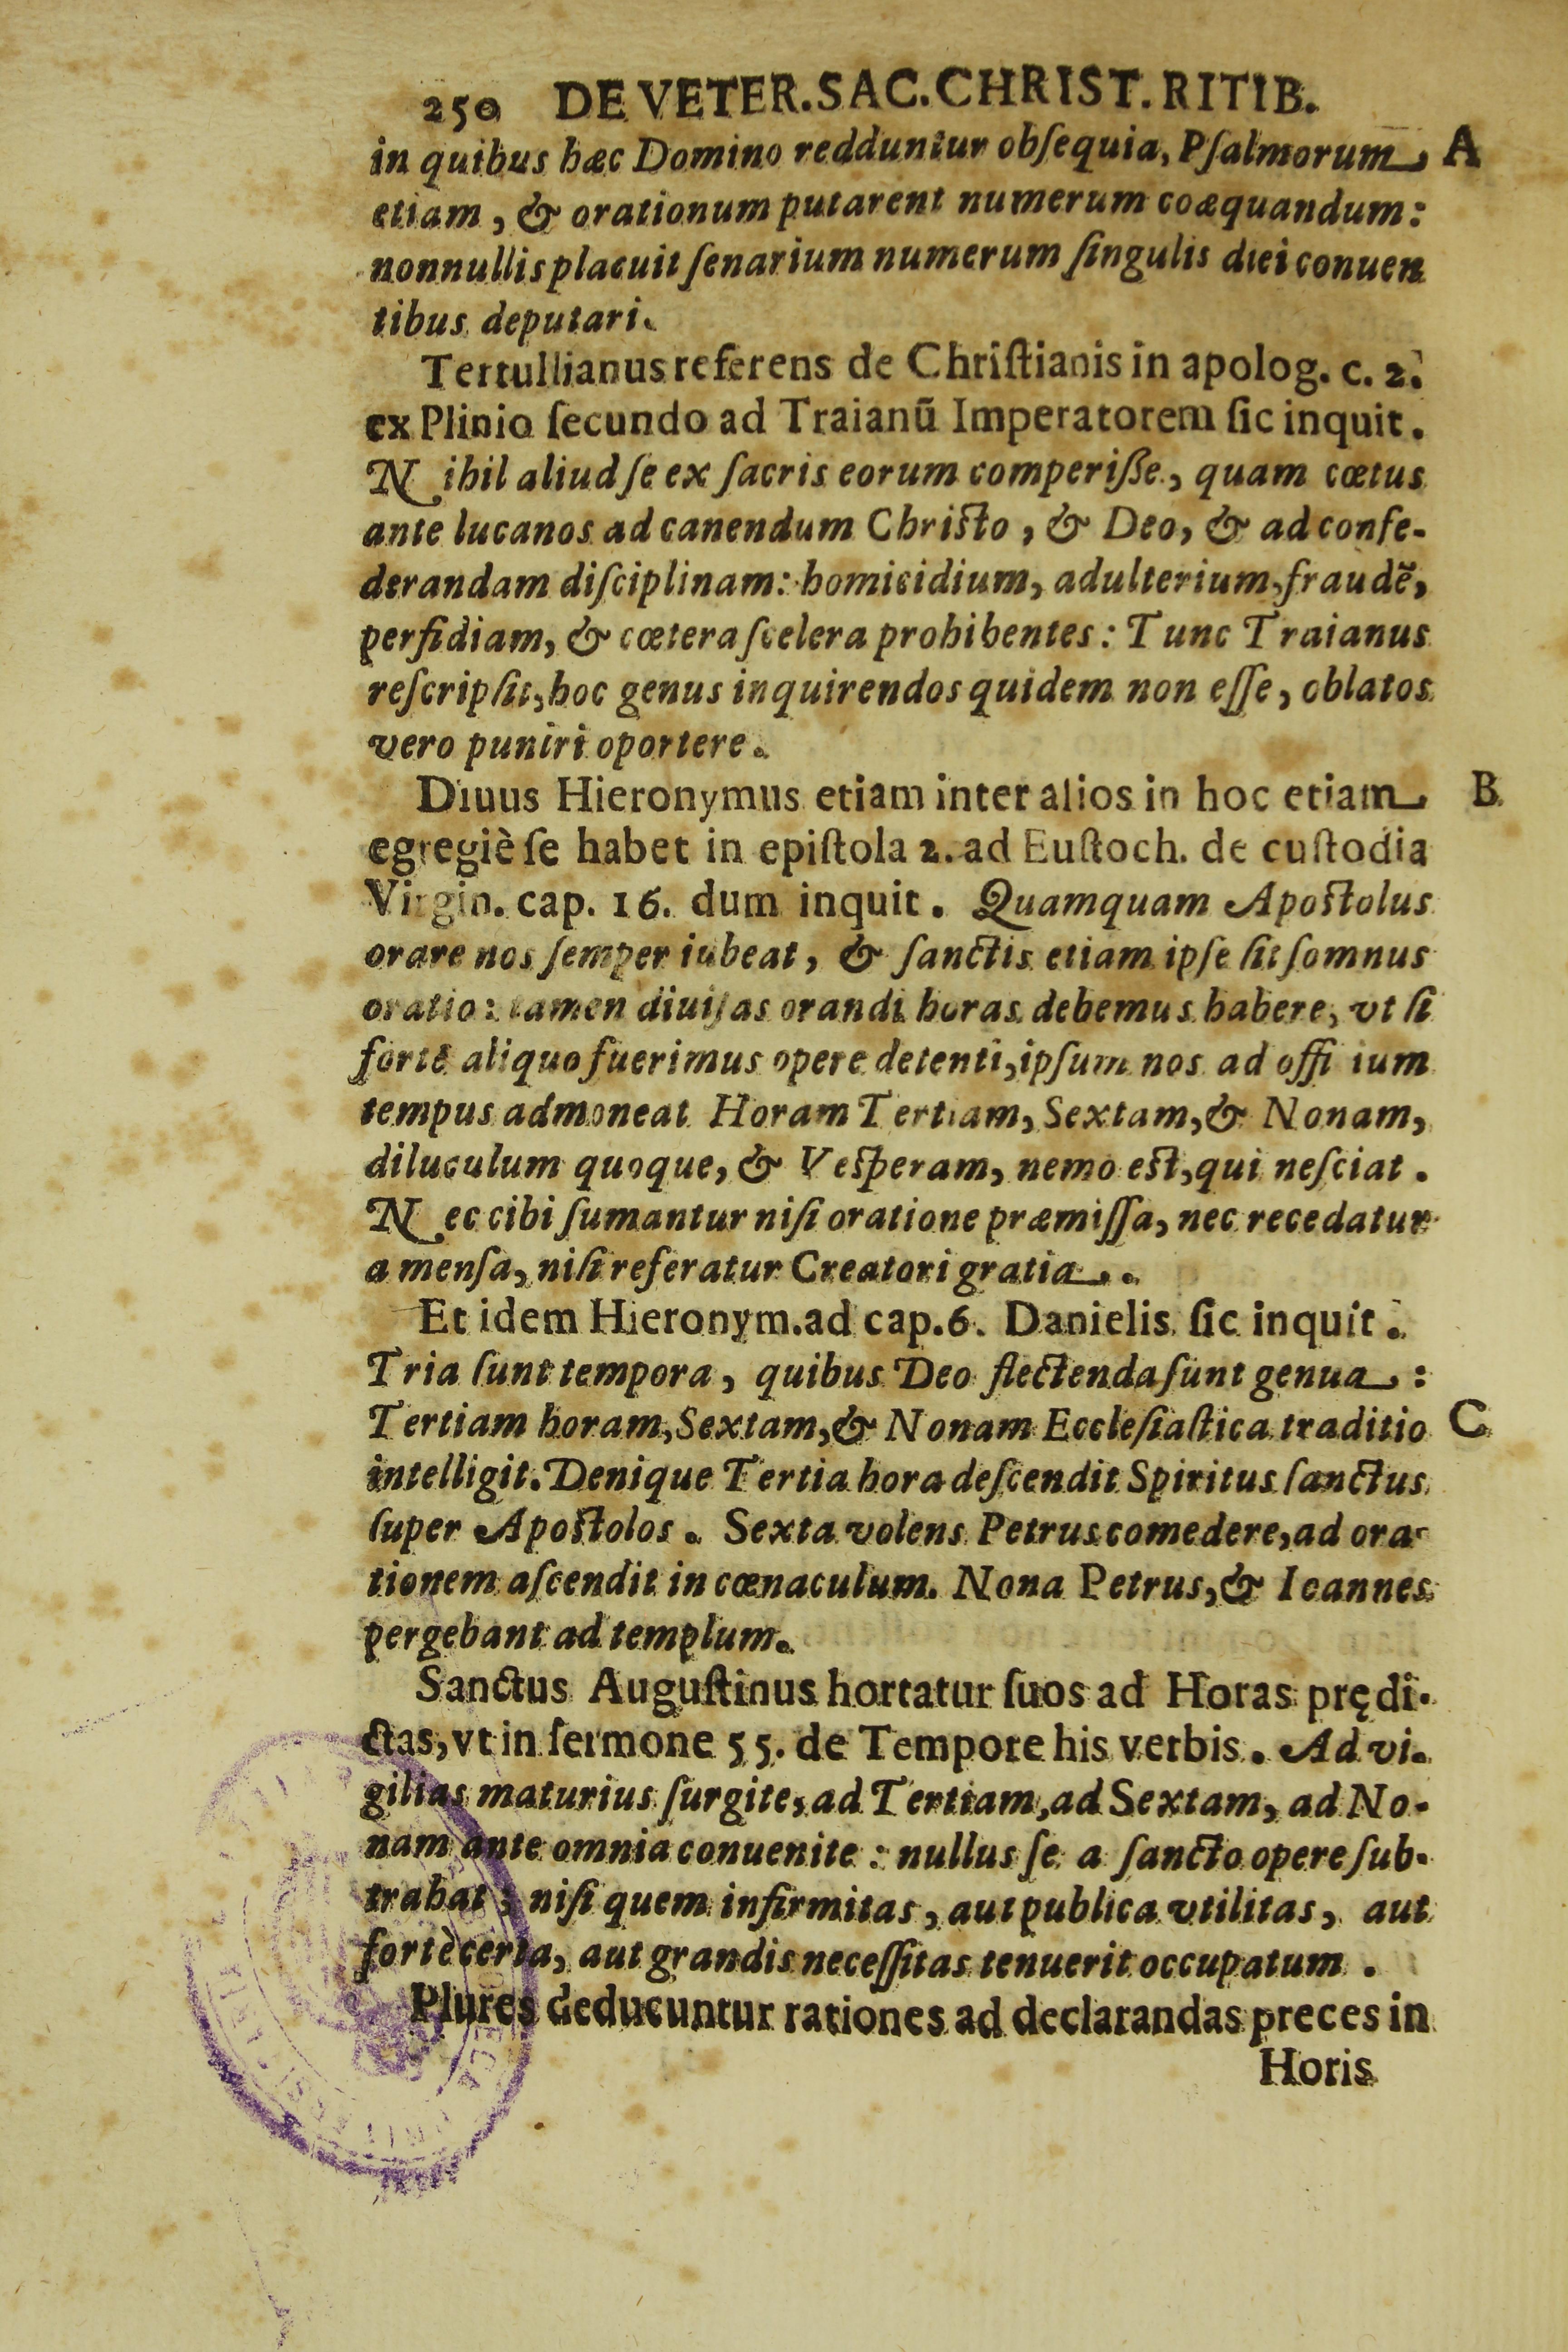 250 DE VETER. SAC. CHRIST. RITIB.
in quibus hæc Domino redduntur obſequia, Pſalmorum A
etiam, & orationum putarent numerum coæquandum:
nonnullis placuit ſenarium numerum ſingulis diei conuen
tibus deputari.
Tertullianus referens de Chriſtianis in apolog. c. 2.
ex Plinio ſecundo ad Traianũ Imperatorem ſic inquit.
Nihil aliud ſe ex ſacris eorum comperiße, quam cœtus
ante lucanos ad canendum Chriſto, & Deo, & ad confe-
derandam diſciplinam: homicidium, adulterium, fraudẽ,
perfidiam, & cœtera ſcelera prohibentes: Tunc Traianus
reſcripſit, hoc genus inquirendos quidem non eſſe, oblatos
vero puniri oportere.
Diuus Hieronymus etiam inter alios in hoc etiam B
egregiè ſe habet in epiſtola 2. ad Euſtoch. de cuſtodia
Virgin. cap. 16. dum inquit. Quamquam Apoſtolus
orare nos ſemper iubeat, & ſanctis etiam ipſe ſit ſomnus
oratio: tamen diuiſas orandi horas debemus habere, vt ſi
fortè aliquo fuerimus opere detenti, ipſum nos ad offi ium
tempus admoneat Horam Tertiam, Sextam, & Nonam,
diluculum quoque, & Veſperam, nemo eſt, qui neſciat.
Nec cibi ſumantur niſi oratione præmiſſa, nec recedatur
a menſa, niſi referatur Creatori gratia.
Et idem Hieronym. ad cap. 6. Danielis ſic inquit.
Tria ſunt tempora, quibus Deo flectenda ſunt genua:
Tertiam horam, Sextam, & Nonam Eccleſiaſtica traditio C
intelligit. Denique Tertia hora deſcendit Spiritus ſanctus
ſuper Apoſtolos. Sexta volens Petrus comedere, ad ora-
tionem aſcendit in cœnaculum. Nona Petrus, & Ioannes
pergebant ad templum.
Sanctus Auguſtinus hortatur ſuos ad Horas prędi-
ctas, vt in ſermone 55. de Tempore his verbis. Ad vi-
gilias maturius ſurgite, ad Tertiam, ad Sextam, ad No-
nam ante omnia conuenite: nullus ſe a ſancto opere ſub-
trahat; niſi quem infirmitas, aut publica vtilitas, aut
fortè certa, aut grandis neceſſitas tenuerit occupatum.
Plures deducuntur rationes ad declarandas preces in
Horis